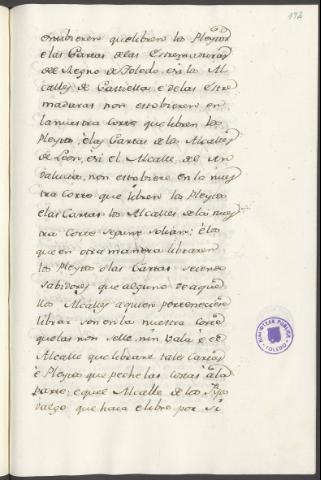 192
estubieren que libren los Pleytos
e las Cartas de las Estremaduras
del Regno de Toledo, e si los Al-
calles de Castiella, e de las Estre-
maduras non estobieren en
la nuestra Corte que libren los
Pleytos, e las Cartas de los Alcalles
de Leon, e si el Alcalle del An-
dalucia, non estobiere en la nues
tra Corte que libren los Pleytos
e las Cartas los Alcalles de la nues
tra Corte segunt solian; e los
que en otra manera libraren
los Pleytos o las Cartas seiendo
sabidores que alguno de aque
llos Alcalles a quien pertenesciere
librar son en la nuestra Corte
que las non selle, nin vala e el
Alcalle que librare tales Cartas
e Pleytos que peche las costas a la
parte: e que el Alcalle de los Fijos
dalgo que haia e libre por si
BIBLIOTECA PUBLICA
TOLEDO